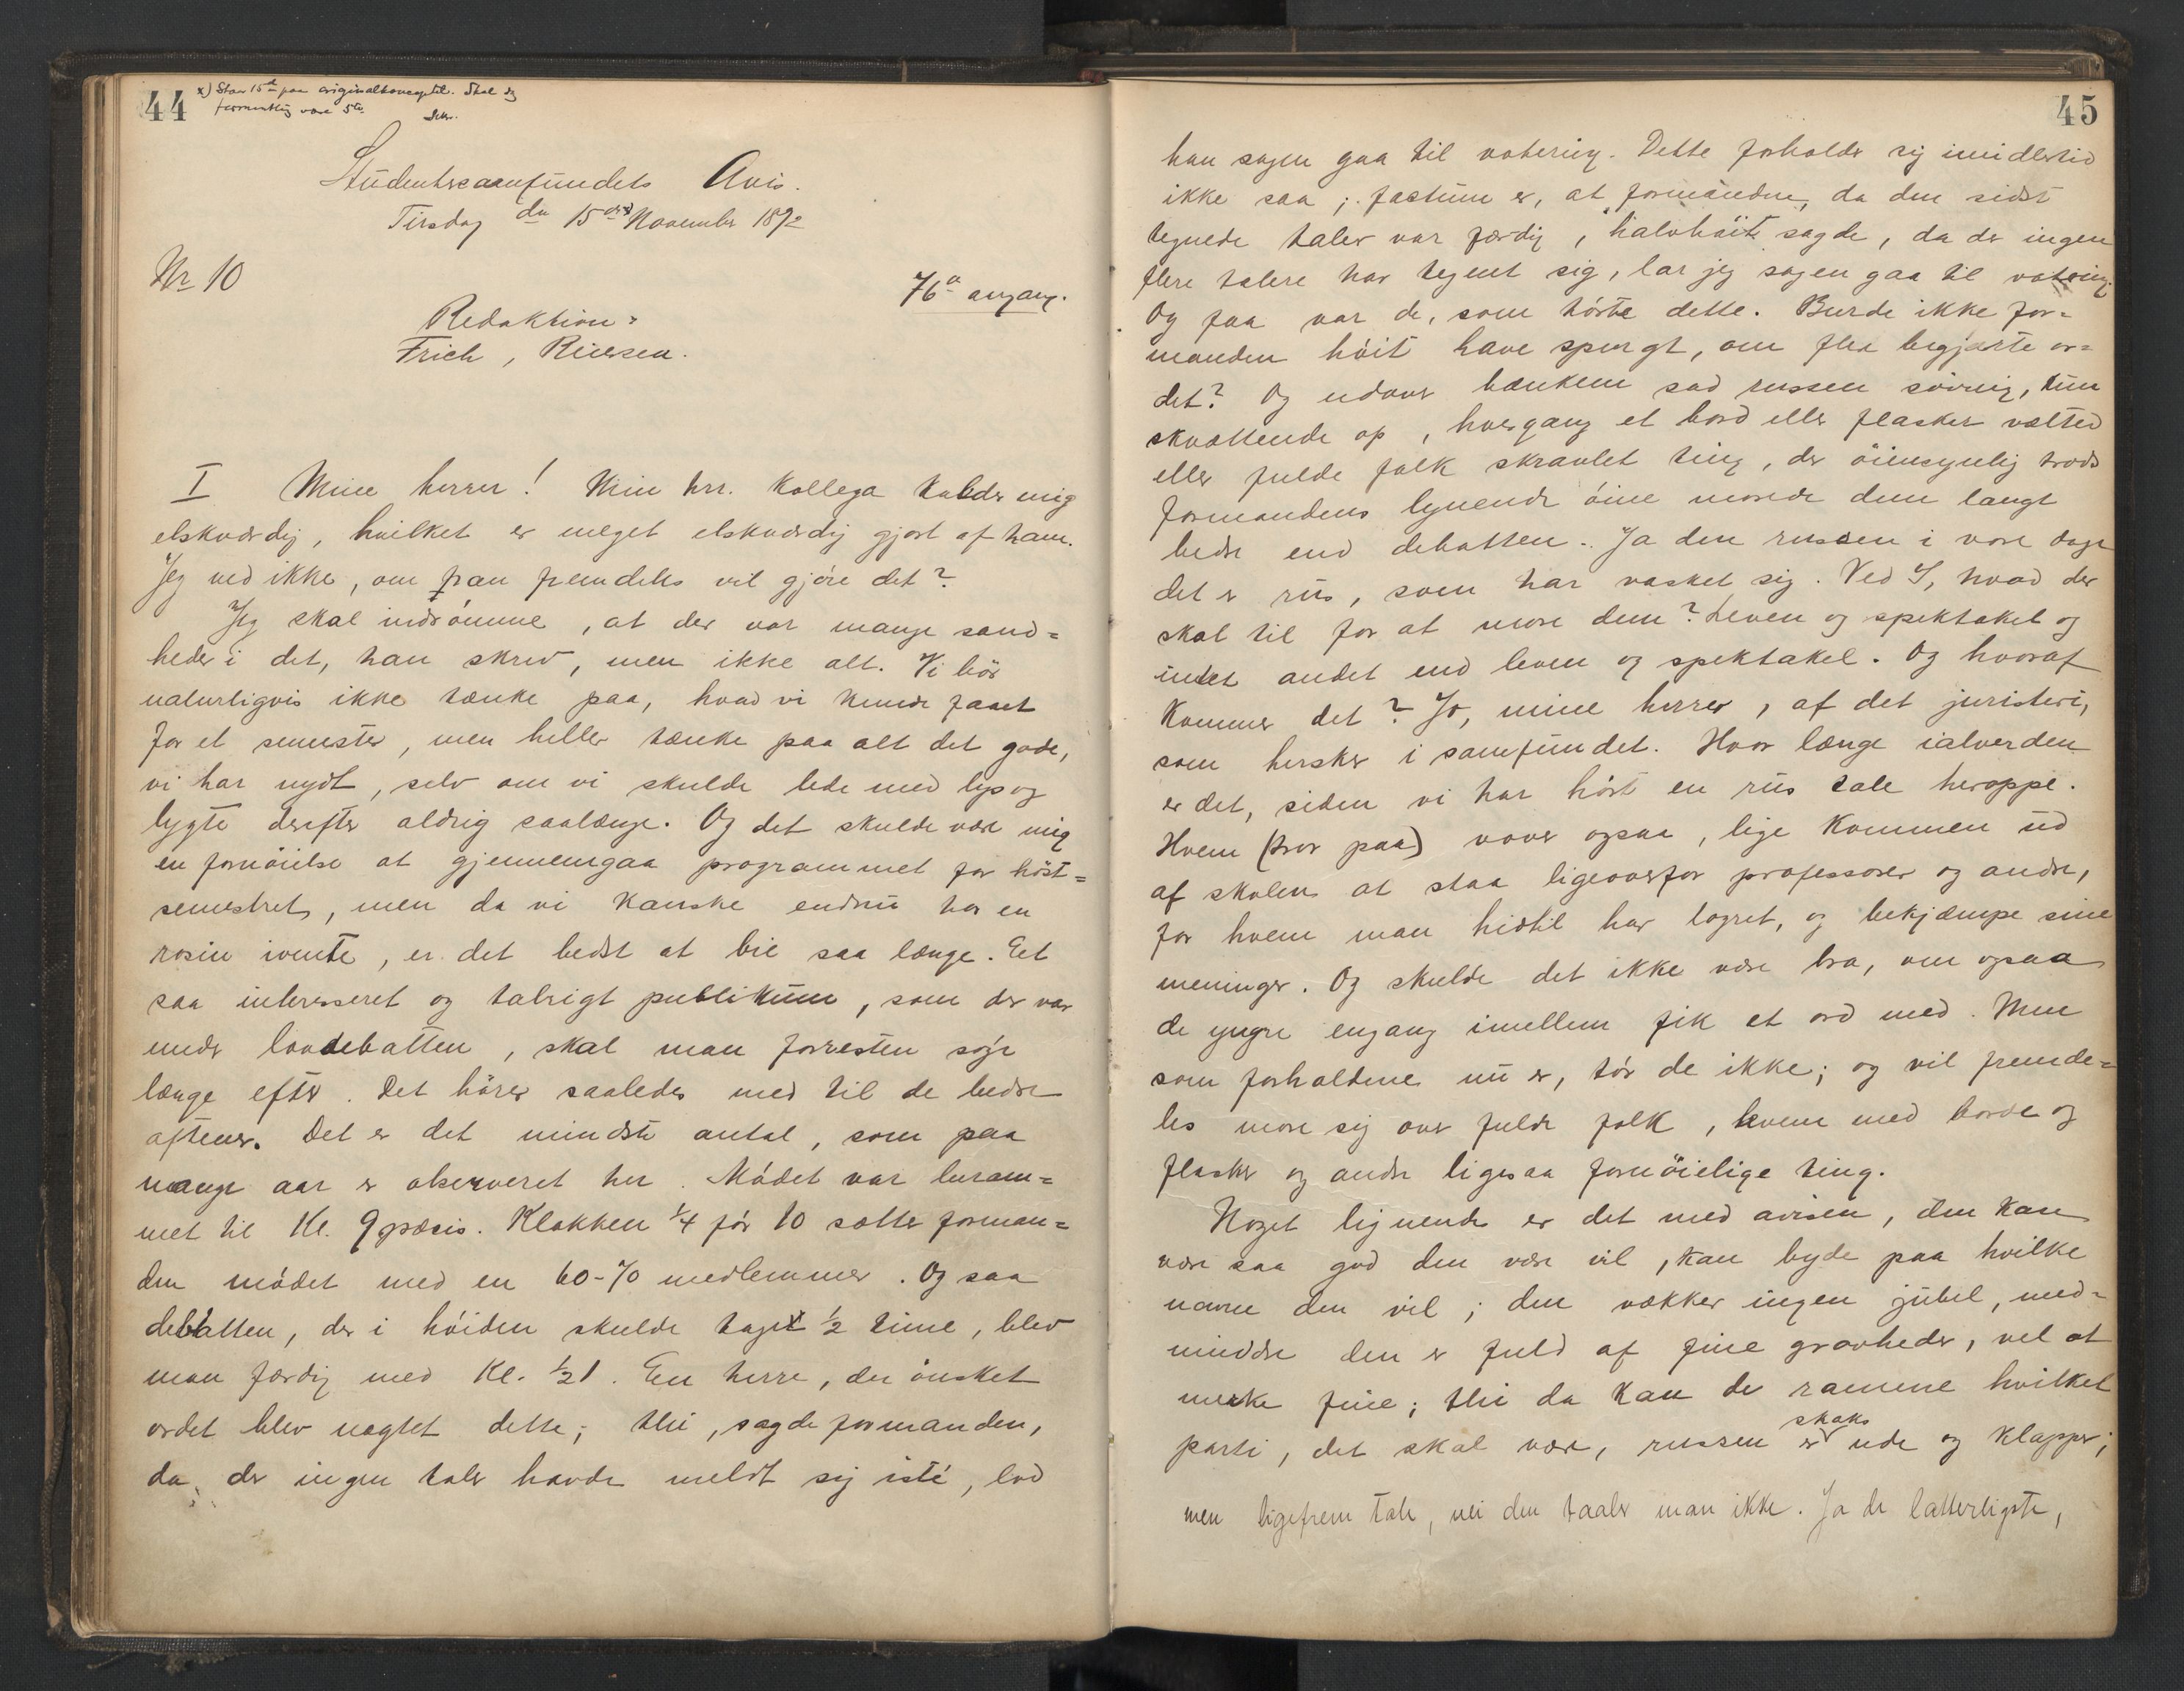 44 x) Staar 15de paa originalkonceptet. Skal dog
formentlig være 5te. Sekr.
Studentersamfundets Avis.
Tirsdag den 15de x) November 1892
Nr 10
76de argang.
Redaktion:
Frich, Riversen.
I Mine herrer! Min hrr. kollega kalder mig
elskværdig, hvilket er meget elskværdig gjort af ham.
Jeg ved ikke, om han fremdeles vil gjøre det?
Jeg skal indrømme, at der var mange sand=
heder i det, han skrev, men ikke alt. Vi bør
naturligvis ikke tænke paa, hvad vi kunde faaet
for et semester, men heller tænke paa alt det gode,
vi har nydt, selv om vi skulde lede med lys og
lygte derefter aldrig saalænge. Og det skulde være mig
en fornøielse at gjennemgaa programmet for høst=
semestret, men da vi kanske endnu har en
rosin ivente, er det bedst at bie saa længe. Et
saa interesseret og talrigt publikum, som der var
under lovdebatten, skal man forresten søge
længe efter. Det hører saaledes med til de bedre
aftener. Det er det mindste antal, som paa
mange aar er observeret her. Mødet var beram=
met til Kl. 9 præcis. Klokken 1/4 før 10 satte forman=
den mødet med en 60-70 medlemmer. Og saa
debatten, der i høiden skulde taget 1/2 time, blev
man færdig med Kl. 1/2 1. En herre, der ønsket
ordet blev nægtet dette; thi, sagde formanden,
da der ingen taler havde meldt sig isté, lod
45
han sagen gaa til votering. Dette forholder sig imidlertid
ikke saa; factum er, at formanden, da den sidst
tegnede taler var færdig, halvhøit sagde, da der ingen
flere talere har tegnet sig, lar jeg sagen gaa til votering.
Og faa var de, som hørte dette. Burde ikke for=
manden høit have spurgt, om flere begjærte or=
det? Og udover bænkene sad russen søvnig, kun
skvættende op, hvergang et bord eller flasker vælted
eller fulde folk skravlet ting, der øiensynlig trods
formandens lynende øine morede dem langt
bedre end debatten. Ja den russen i vore dage
det er rus, som har vasket sig. Ved I, hvad der
skal til for at more dem? Leven og spektakel og
intet andet end leven og spektakel. Og hvoraf
kommer det? Jo, mine herrer, af det juristeri,
som hersker i samfundet. Hvor længe ialverden
er det, siden vi har hørt en rus tale heroppe.
Hvem (tror paa) vover ogsaa, lige kommen ud
af skolen at staa ligeoverfor professorer og andre,
for hvem man hidtil har logret, og bekjæmpe sine
meninger. Og skulde det ikke være bra, om ogsaa
de yngre engang imellem fik et ord med. Men
som forholdene nu er, tør de ikke; og vil fremde=
les more sig over fulde folk, leven med borde og
flasker og andre ligesaa fornøielige ting.
Noget lignende er det med avisen, den kan
være saa god den være vil, kan byde paa hvilke
navne den vil; den vækker ingen jubel, med=
mindre den er fuld af fine grovheder, vel at
merke fine; thi da kan de ramme hvilket
parti, det skal være, russen er straks ude og klapper;
men ligefrem tale, nei den taaler man ikke. Ja de latterligste,